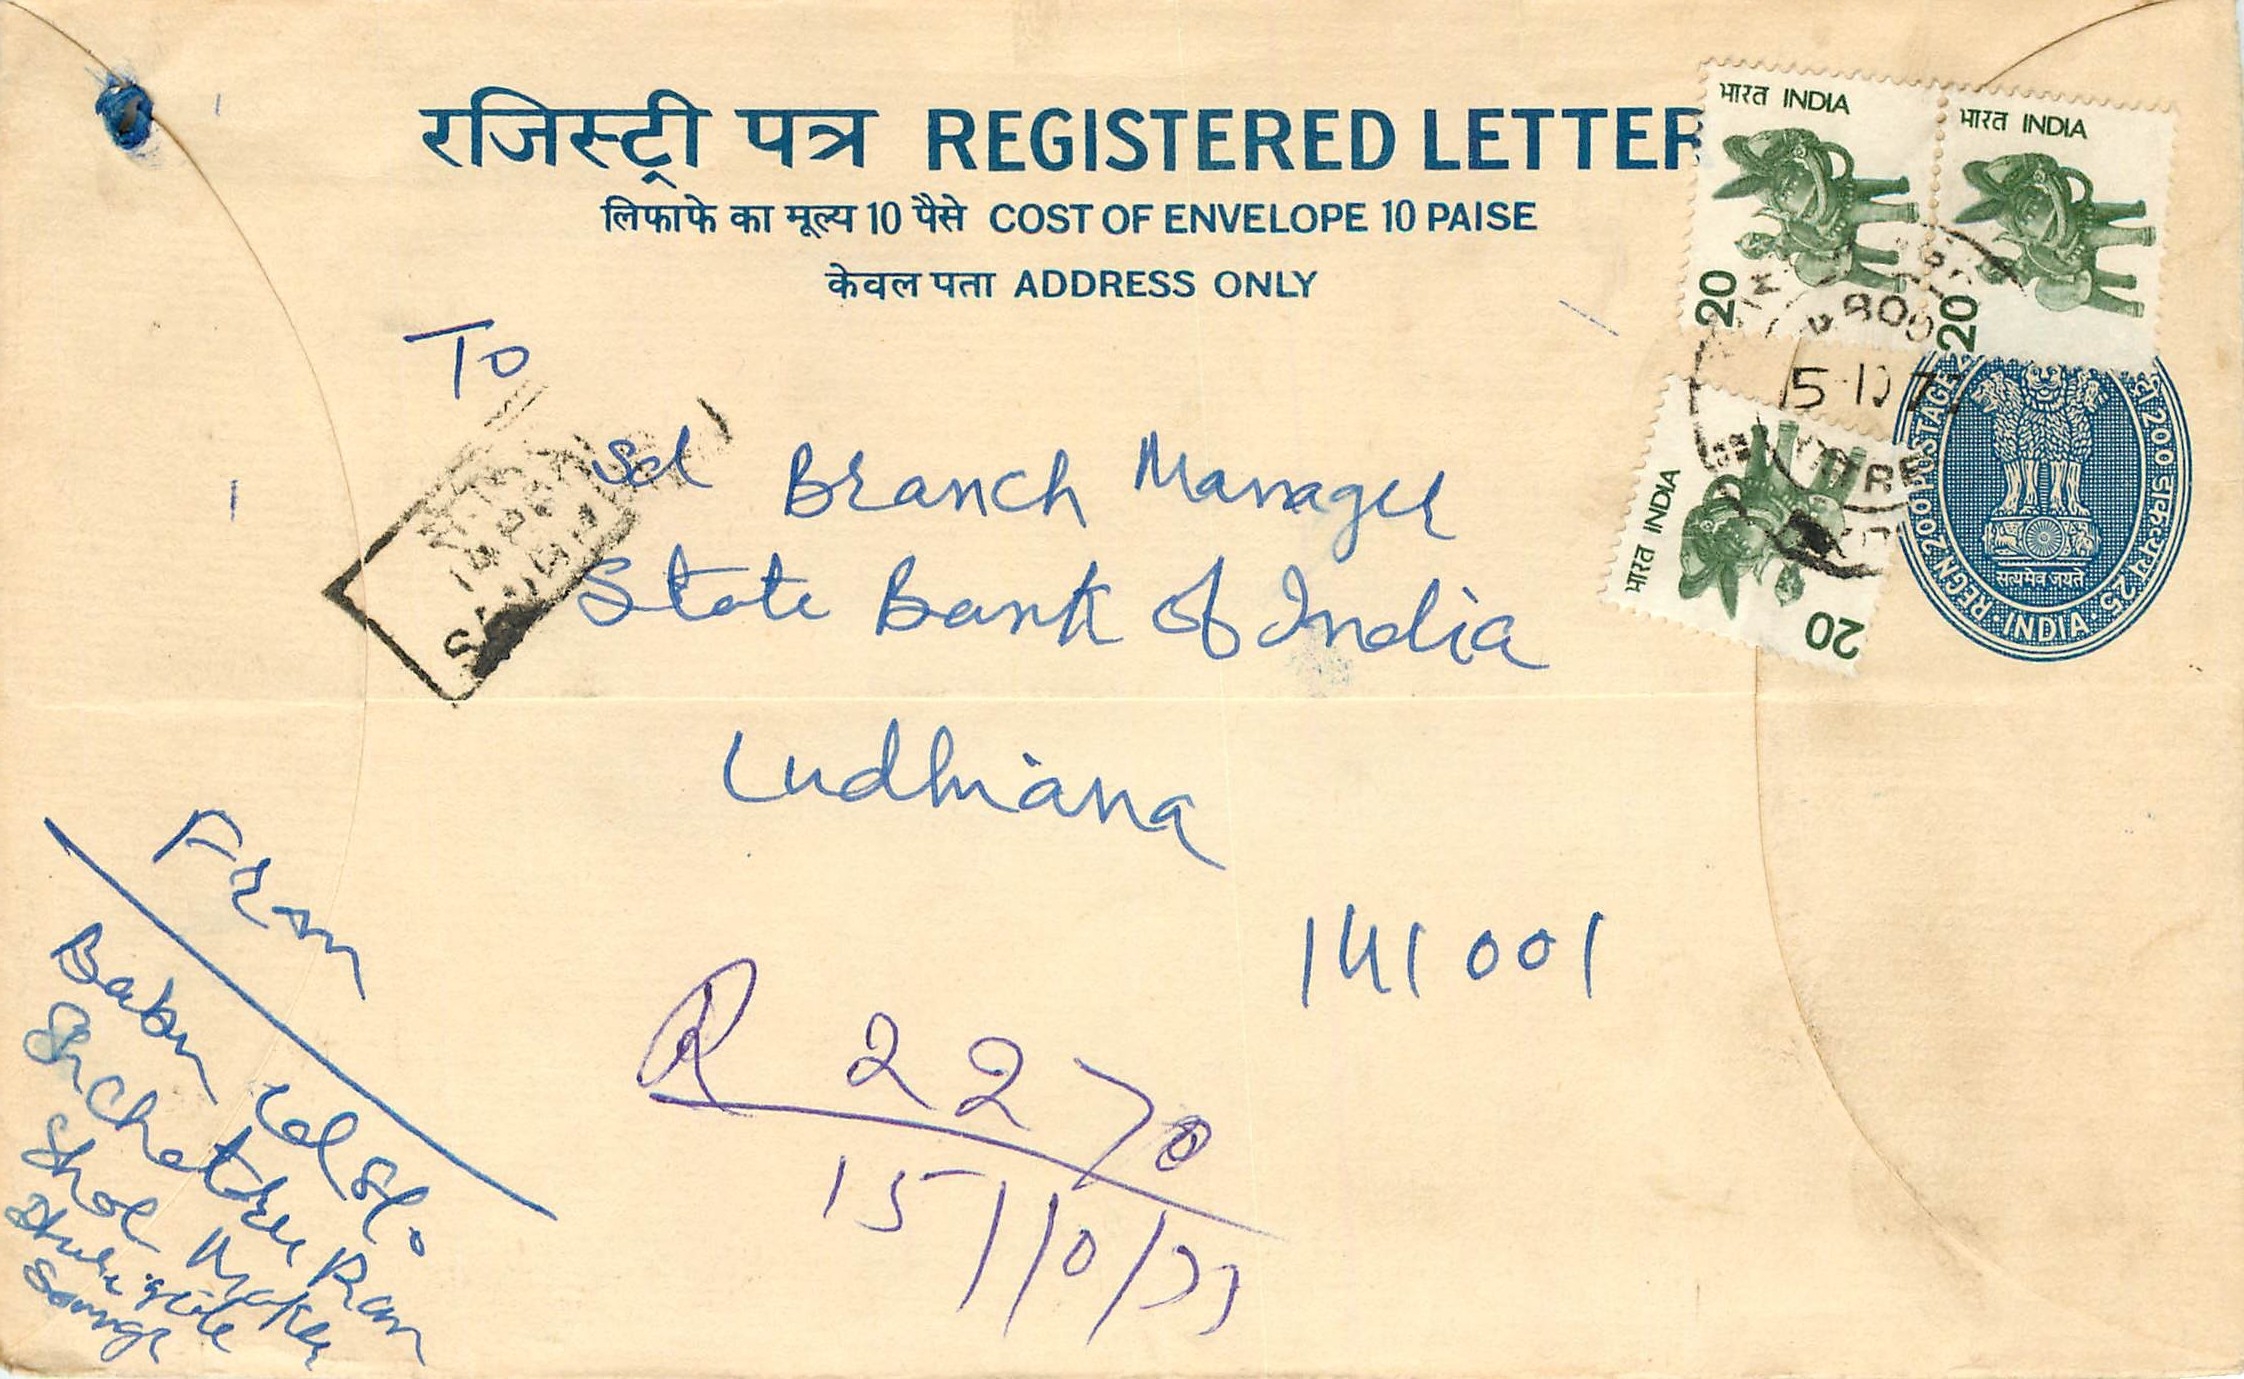 रजिस्ट्री पत्र REGISTERED LETTER
लिफाफे का मूल्य 10 पैसे COST OF ENVELOPE 10 PAISE
केवल पता ADDRESS ONLY
भारत INDIA
20
भारत INDIA
20
भारत INDIA
20
REGN 200 POSTAGE
INDIA
सत्यमेव जयते
To
Branch Manager
State Bank of India
Ludhiana
141001
R 2270
15/10/77
From
Babu
Ram
Shoe Maker